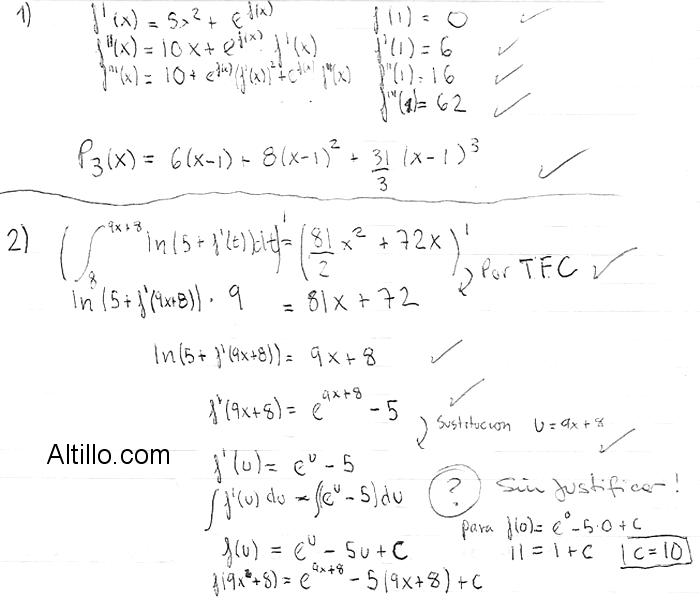 1) f'(x) = 5x² + e^f(x) f(1) = 0 ✓
f''(x) = 10x + e^f(x) · f'(x) f'(1) = 6 ✓
f'''(x) = 10 + e^f(x) (f'(x))² + e^f(x) f''(x) f''(1) = 16 ✓
f'''(1) = 62 ✓
P₃(x) = 6(x-1) + 8(x-1)² + 31/3 (x-1)³ ✓
2) (∫₈^9x+8 ln(5 + f'(t)) dt)' = (81/2 x² + 72x)'
Por TFC ✓
ln(5 + f'(9x+8)) · 9 = 81x + 72
ln(5 + f'(9x+8)) = 9x + 8 ✓
f'(9x+8) = e^9x+8 - 5 ✓
Sustitucion u = 9x+8 ✓
Altillo.com
f'(u) = e^u - 5
∫ f'(u) du = ∫(e^u - 5) du ? Sin Justificar!
para f(0) = e^0 - 5·0 + c
f(u) = e^u - 5u + C 11 = 1 + c c = 10
f(9x+8) = e^9x+8 - 5(9x+8) + c